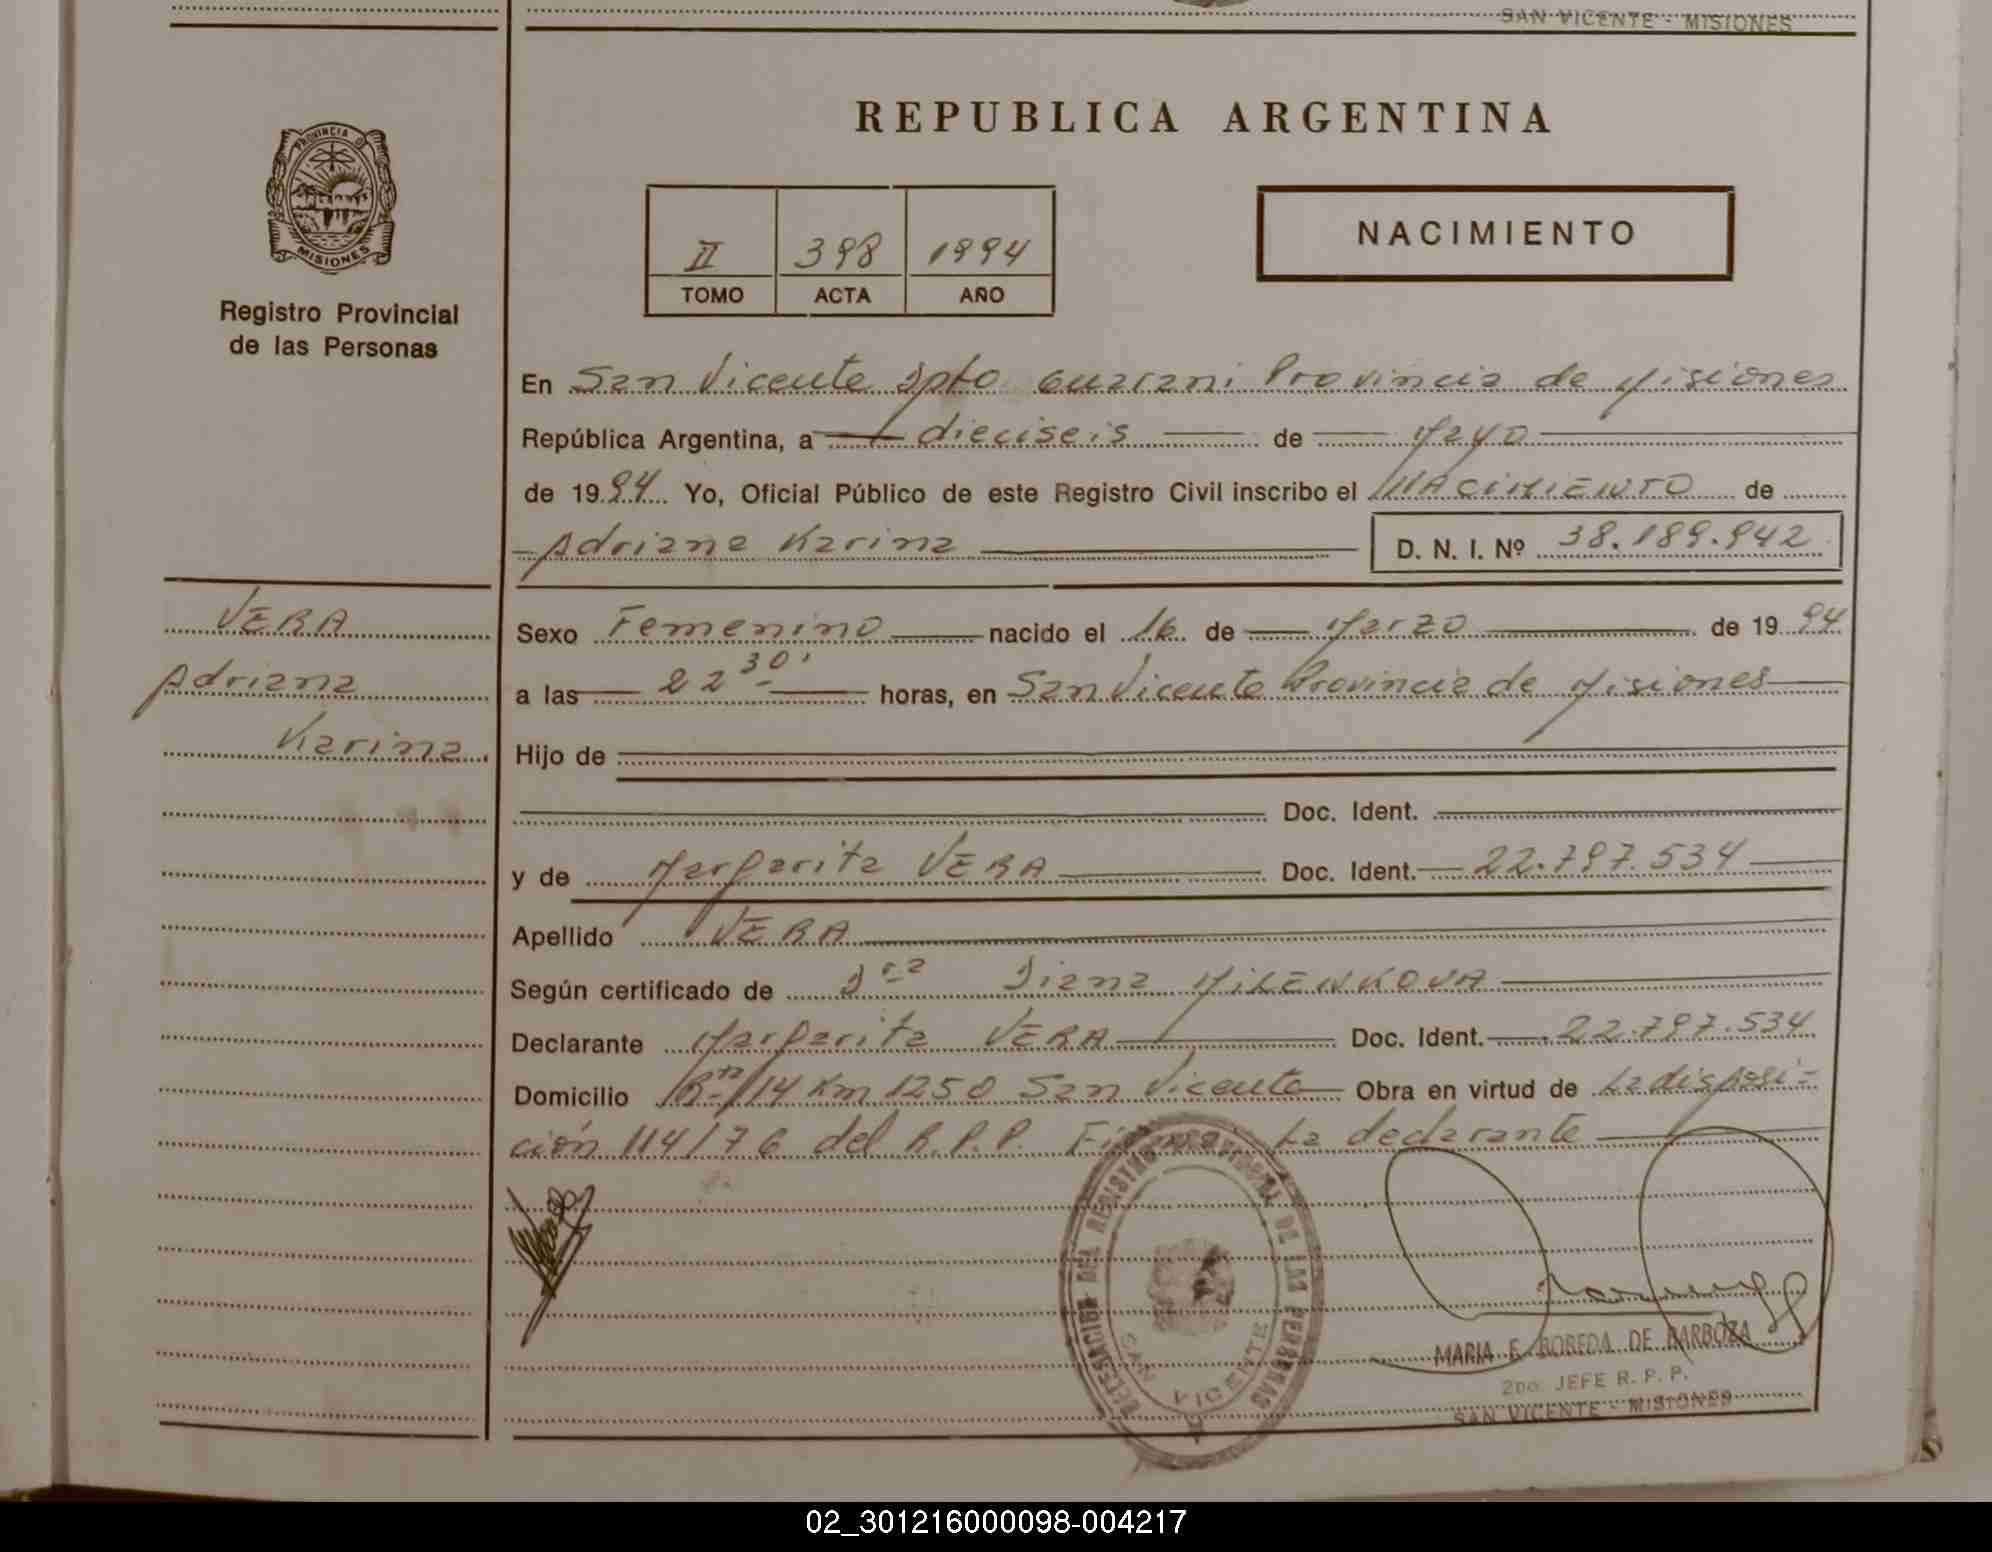 SAN VICENTE - MISIONES
PROVINCIA D
MISIONES
Registro Provincial
de las Personas
REPUBLICA ARGENTINA
II 398 1994
TOMO ACTA AÑO
NACIMIENTO
En San Vicente Dpto Guarani Provincia de Misiones
República Argentina, a dieciseis de Mayo
de 1994 Yo, Oficial Público de este Registro Civil inscribo el NACIMIENTO de
Adriana Karina D. N. I. Nº 38.189.942
VERA
Adriana
Karina
Sexo Femenino nacido el 16 de Marzo de 1994
a las 22 30' horas, en San Vicente Provincia de Misiones
Hijo de
Doc. Ident.
y de Margarita VERA Doc. Ident. 22.797.534
Apellido VERA
Según certificado de Dra Diana MILENKOVA
Declarante Margarita VERA Doc. Ident. 22.797.534
Domicilio Rta 14 Km 1250 San Vicente Obra en virtud de La disposi-
ción 114/76 del R.P.P. Firma La declarante
DELEGACION DEL REGISTRO PROVINCIAL DE LAS PERSONAS
SAN VICENTE
MARIA E. BOBEDA DE BARBOZA
2do. JEFE R. P. P.
SAN VICENTE - MISIONES
02_301216000098-004217